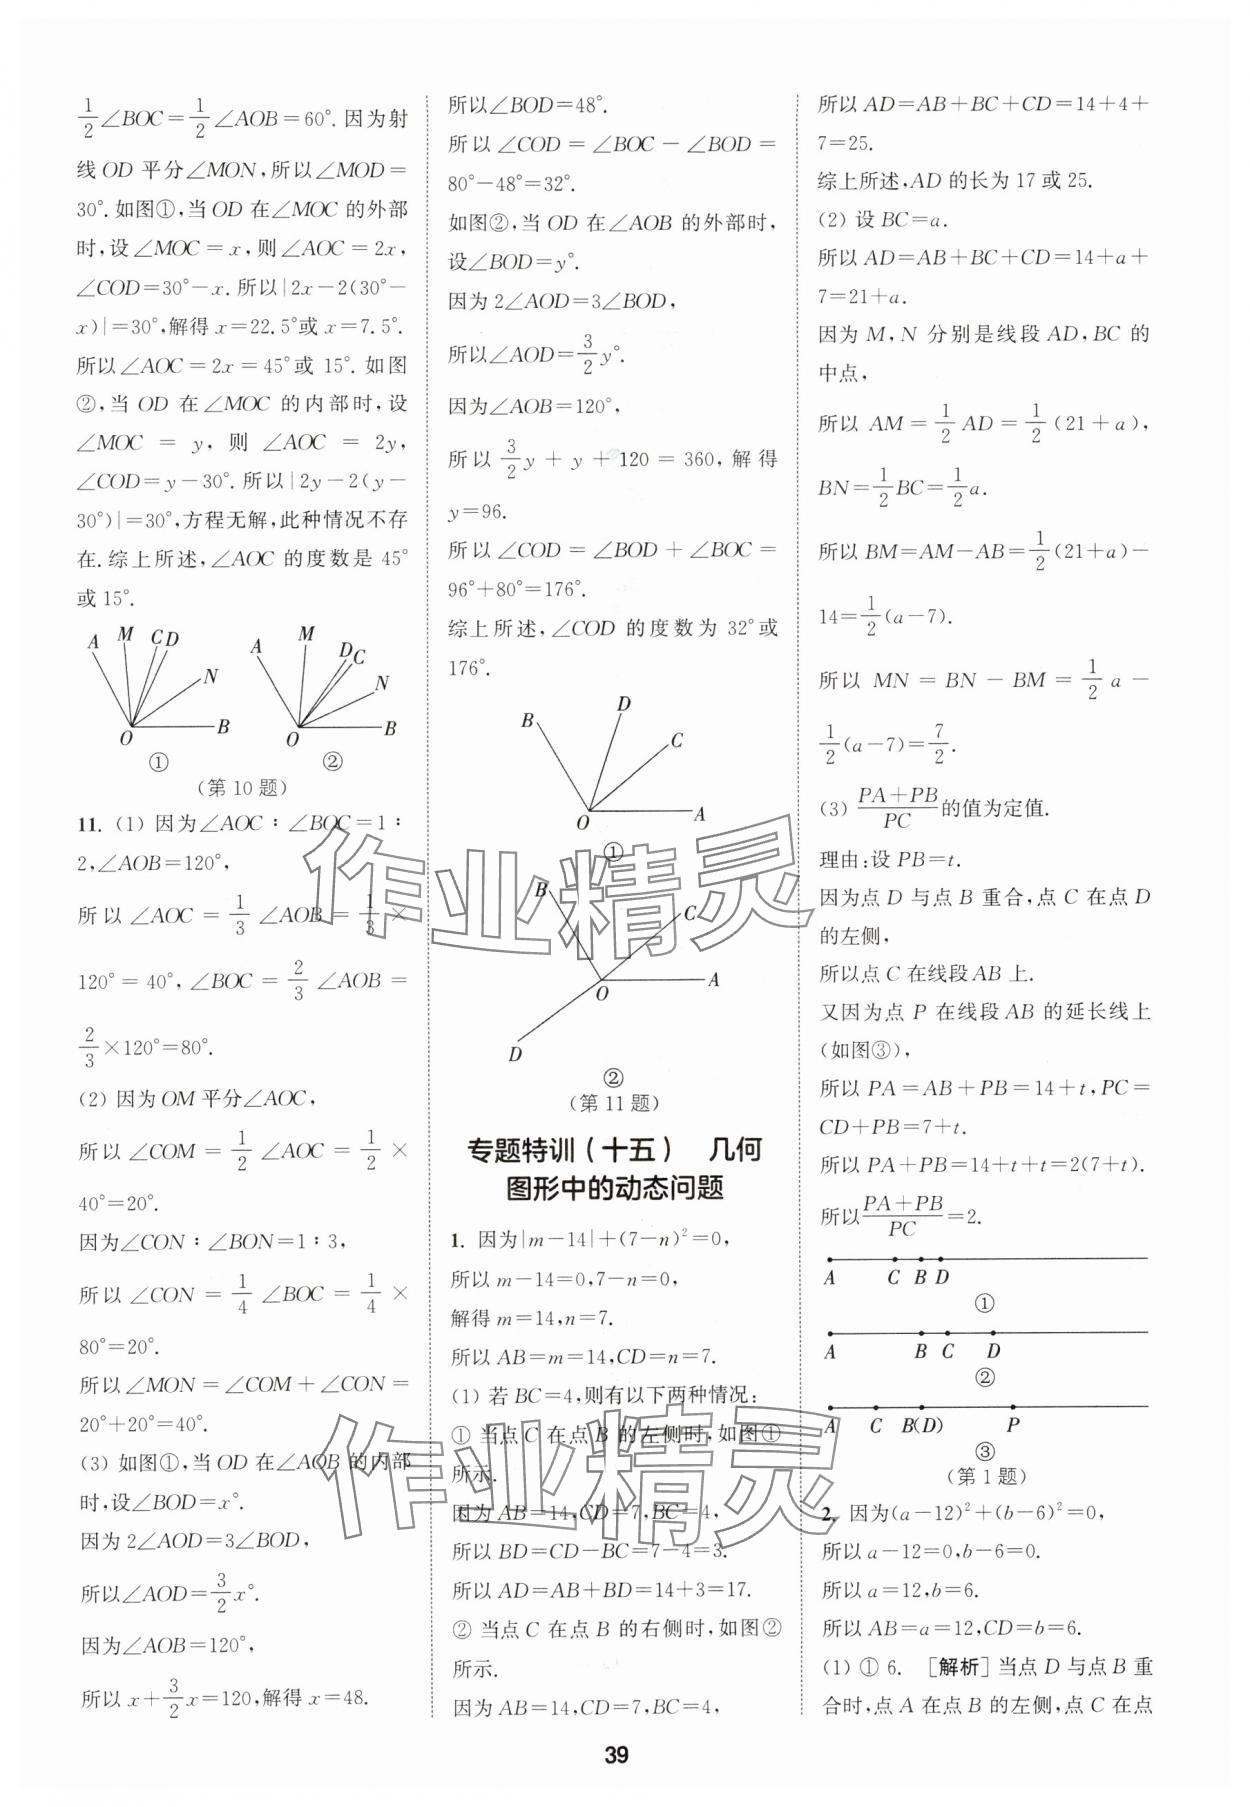 1/2∠BOC=1/2∠AOB=60°.因为射
线OD平分∠MON,所以∠MOD=
30°.如图①,当OD在∠MOC的外部
时,设∠MOC=x,则∠AOC=2x,
∠COD=30°-x.所以|2x-2(30°-
x)|=30°,解得x=22.5°或x=7.5°.
所以∠AOC=2x=45°或15°.如图
②,当OD在∠MOC的内部时,设
∠MOC=y,则∠AOC=2y,
∠COD=y-30°.所以|2y-2(y-
30°)|=30°,方程无解,此种情况不存
在.综上所述,∠AOC的度数是45°
或15°.
A M C D N O B
①
A M D C N O B
②
(第10题)
11. (1) 因为∠AOC∶∠BOC=1∶
2,∠AOB=120°,
所以∠AOC=1/3∠AOB=1/3×
120°=40°,∠BOC=2/3∠AOB=
2/3×120°=80°.
(2) 因为OM平分∠AOC,
所以∠COM=1/2∠AOC=1/2×
40°=20°.
因为∠CON∶∠BON=1∶3,
所以∠CON=1/4∠BOC=1/4×
80°=20°.
所以∠MON=∠COM+∠CON=
20°+20°=40°.
(3) 如图①,当OD在∠AOB的内部
时,设∠BOD=x°.
因为2∠AOD=3∠BOD,
所以∠AOD=3/2x°.
因为∠AOB=120°,
所以x+3/2x=120,解得x=48.
所以∠BOD=48°.
所以∠COD=∠BOC-∠BOD=
80°-48°=32°.
如图②,当OD在∠AOB的外部时,
设∠BOD=y°.
因为2∠AOD=3∠BOD,
所以∠AOD=3/2y°.
因为∠AOB=120°,
所以3/2y+y+120=360,解得
y=96.
所以∠COD=∠BOD+∠BOC=
96°+80°=176°.
综上所述,∠COD的度数为32°或
176°.
B D C O A
①
B C O A D
②
(第11题)
专题特训(十五) 几何
图形中的动态问题
1. 因为|m-14|+(7-n)²=0,
所以m-14=0,7-n=0,
解得m=14,n=7.
所以AB=m=14,CD=n=7.
(1) 若BC=4,则有以下两种情况:
① 当点C在点B的左侧时,如图①
所示.
因为AB=14,CD=7,BC=4,
所以BD=CD-BC=7-4=3.
所以AD=AB+BD=14+3=17.
② 当点C在点B的右侧时,如图②
所示.
因为AB=14,CD=7,BC=4,
所以AD=AB+BC+CD=14+4+
7=25.
综上所述,AD的长为17或25.
(2) 设BC=a.
所以AD=AB+BC+CD=14+a+
7=21+a.
因为M,N分别是线段AD,BC的
中点,
所以AM=1/2AD=1/2(21+a),
BN=1/2BC=1/2a.
所以BM=AM-AB=1/2(21+a)-
14=1/2(a-7).
所以MN=BN-BM=1/2a-
1/2(a-7)=7/2.
(3) (PA+PB)/PC的值为定值.
理由:设PB=t.
因为点D与点B重合,点C在点D
的左侧,
所以点C在线段AB上.
又因为点P在线段AB的延长线上
(如图③),
所以PA=AB+PB=14+t,PC=
CD+PB=7+t.
所以PA+PB=14+t+t=2(7+t).
所以(PA+PB)/PC=2.
A C B D
①
A B C D
②
A C B(D) P
③
(第1题)
2. 因为(a-12)²+(b-6)²=0,
所以a-12=0,b-6=0.
所以a=12,b=6.
所以AB=a=12,CD=b=6.
(1) ① 6. [解析]当点D与点B重
合时,点A在点B的左侧,点C在点
39
作业精灵
作业精灵